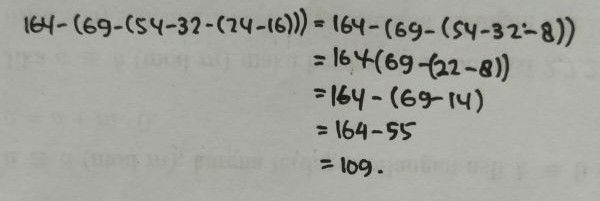 164-(69-(54-32-(24-16))) = 164-(69-(54-32-8))
= 164-(69-(22-8))
= 164-(69-14)
= 164-55
= 109.